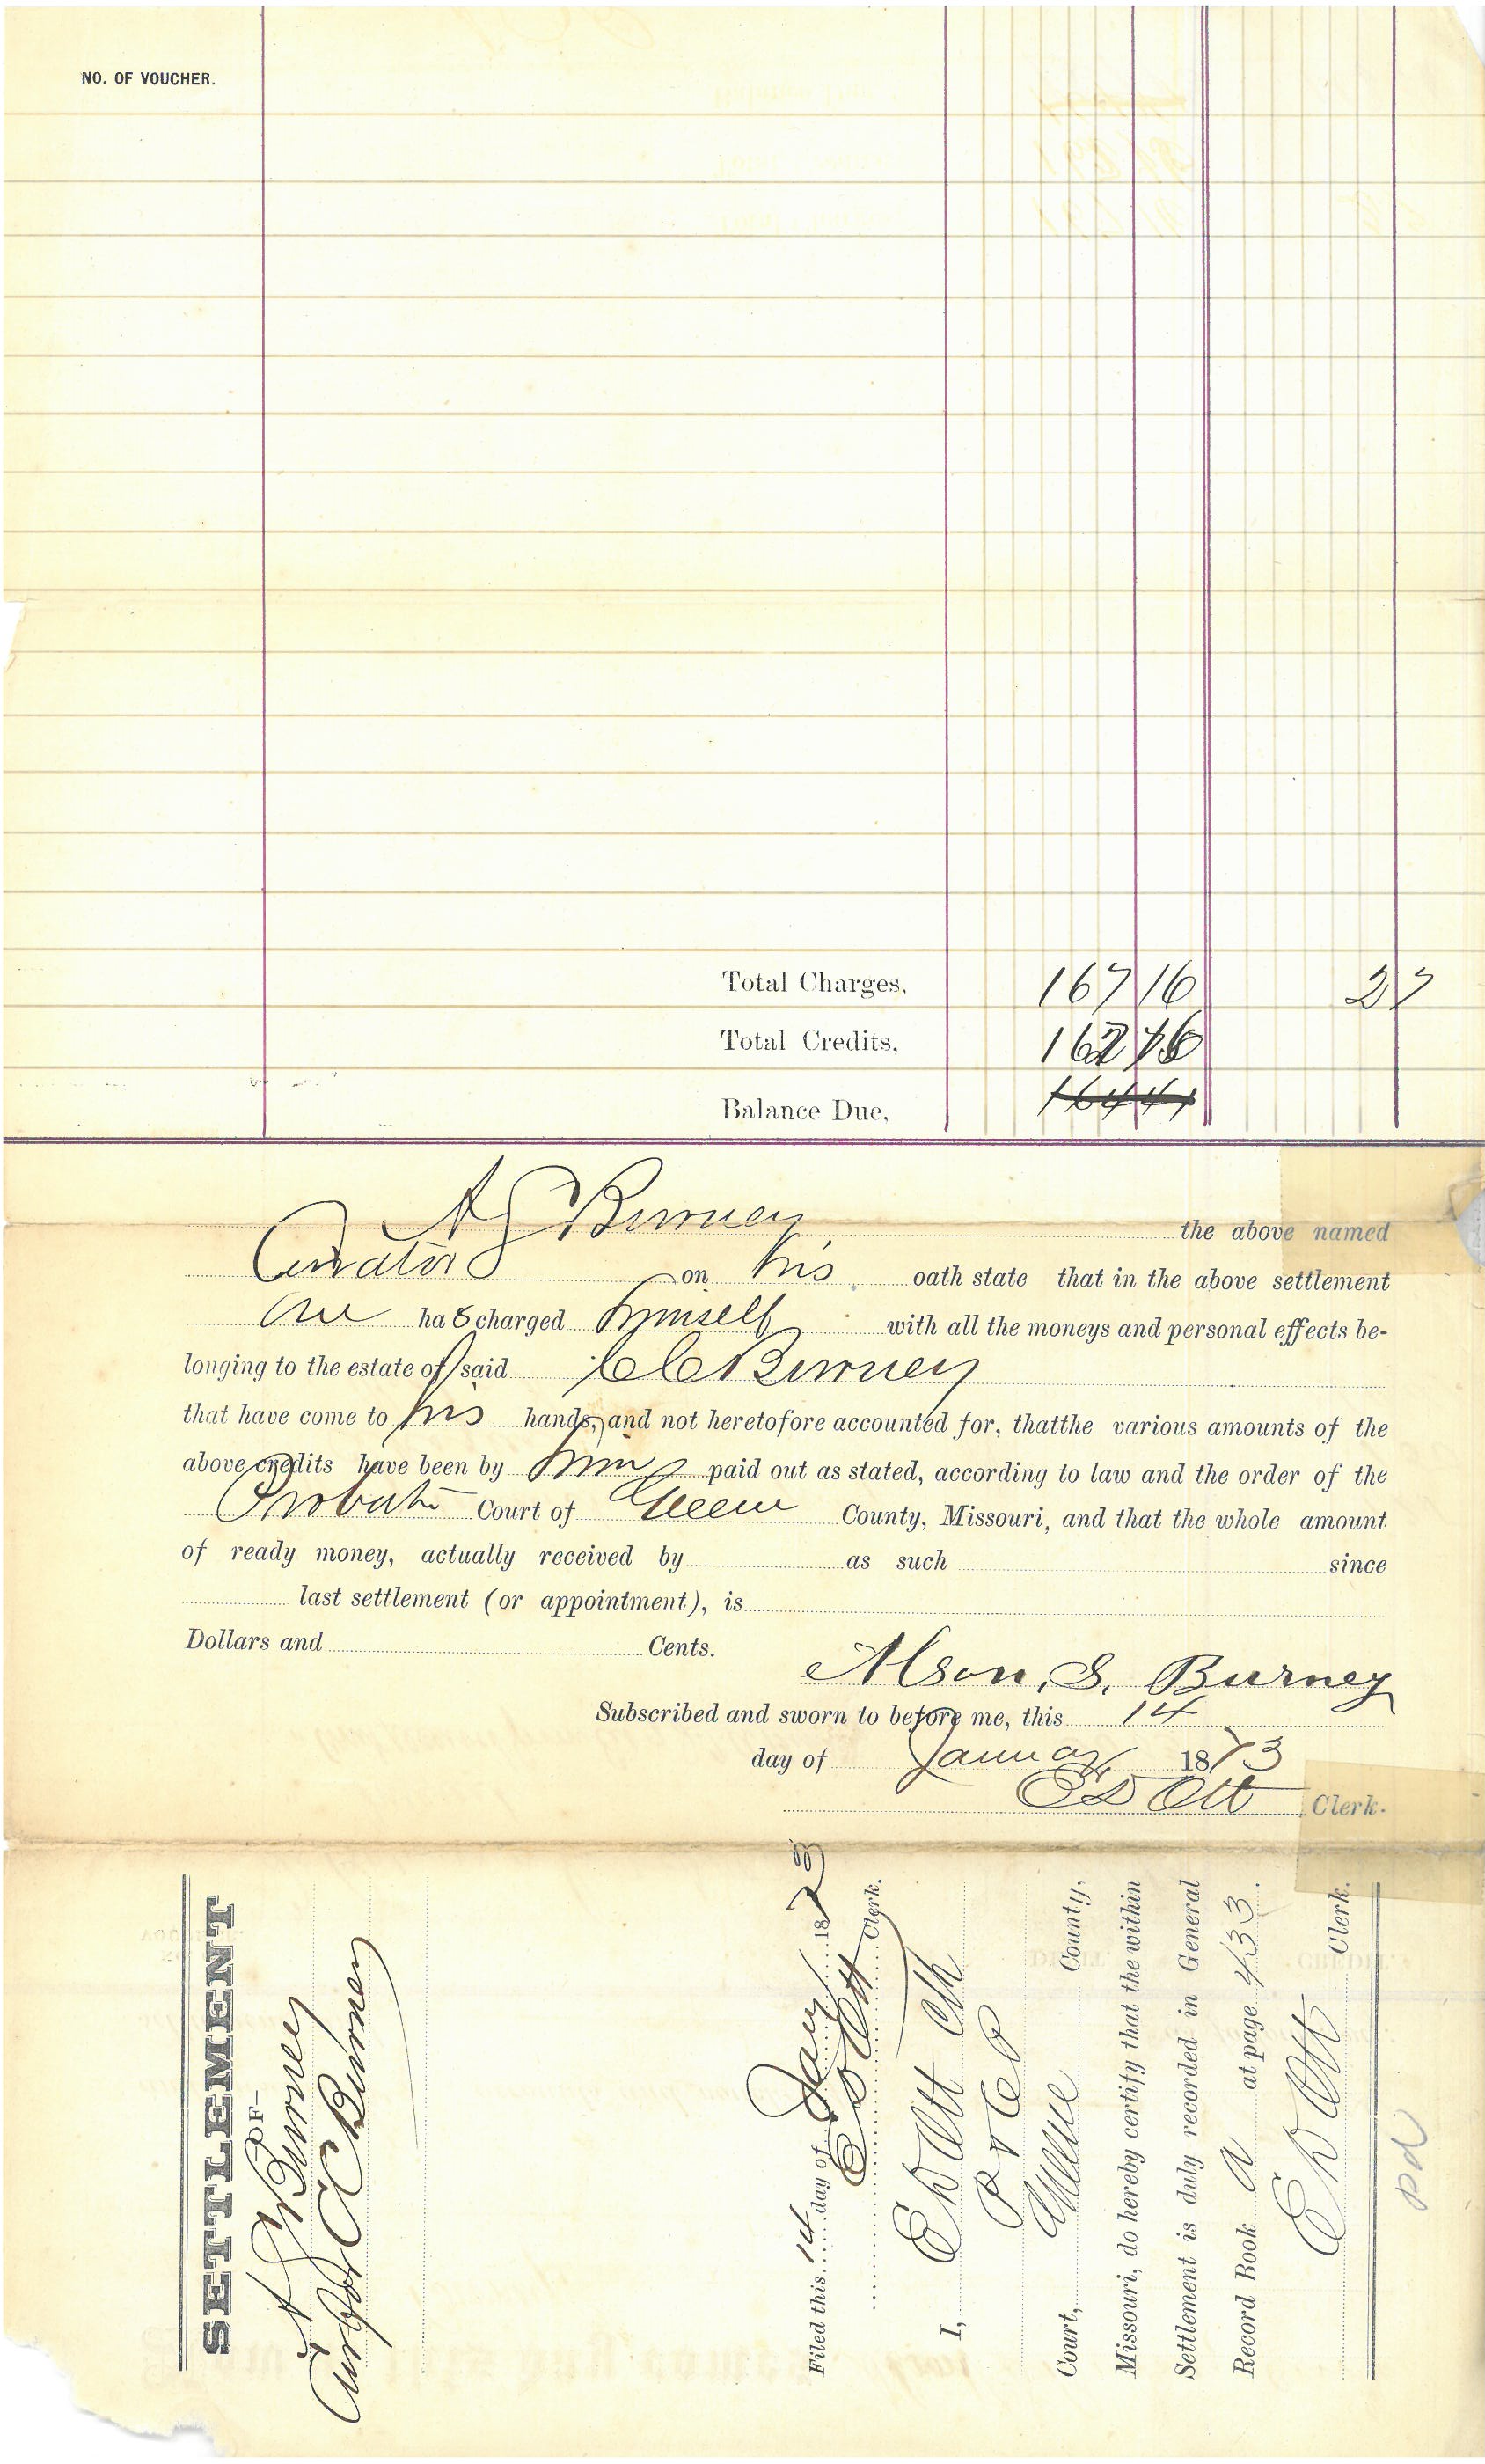 NO. OF VOUCHER.
Total Charges, 167 16 27
Total Credits,
Balance Due,
A S Burney the above named
Curator on his oath state that in the above settlement
he has charged himself with all the moneys and personal effects be-
longing to the estate of said C C Burney
that have come to his hands, and not heretofore accounted for, thatthe various amounts of the
above credits have been by him paid out as stated, according to law and the order of the
Probate Court of Greene County, Missouri, and that the whole amount
of ready money, actually received by as such since
last settlement (or appointment), is
Dollars and Cents.
Alson, S. Burney
Subscribed and sworn to before me, this 14
day of January 1873
E D Ott Clerk.
SETTLEMENT
—OF—
A S Burney
Cur of C C Burney
Filed this 14 day of Jany 1873
E D Ott Clerk.
I, E D Ott Clk
P & C P
Court, Greene County,
Missouri, do hereby certify that the within
Settlement is duly recorded in General
Record Book A at page 433.
E D Ott Clerk.
pd